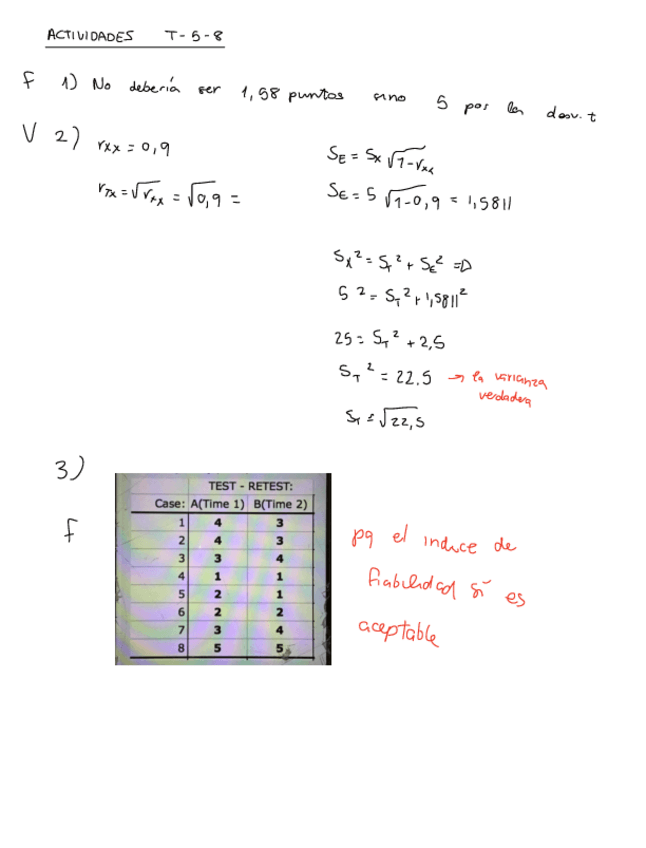 ACTIVIDADES T-5-8
F 1) No debería ser 1,58 puntos sino 5 pos la desv. t
V 2) rxx = 0,9
rTx = √rxx = √0,9 =
SE = Sx √1-rxx
SE = 5 √1-0,9 = 1,5811
Sx² = ST² + SE² =D
5² = ST² + 1,5811²
25 = ST² + 2,5
ST² = 22.5 → la varianza
verdadera
ST = √22,5
3)
F
TEST - RETEST:
Case: A(Time 1) B(Time 2)
1 4 3
2 4 3
3 3 4
4 1 1
5 2 1
6 2 2
7 3 4
8 5 5
pq el indice de
fiabilidad sí es
aceptable